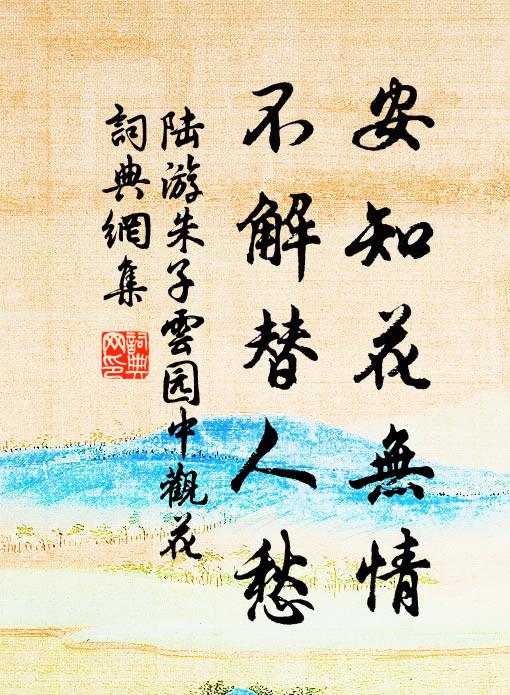 安知花無情
不解替人愁
陆游朱子雲园中觀花
詞典網集
詞典
网印